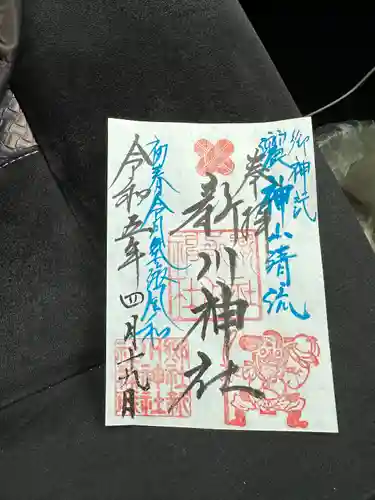 御神託
神山清流
奉拝
新川神社
初春令月氣淑風和
令和五年四月十九日